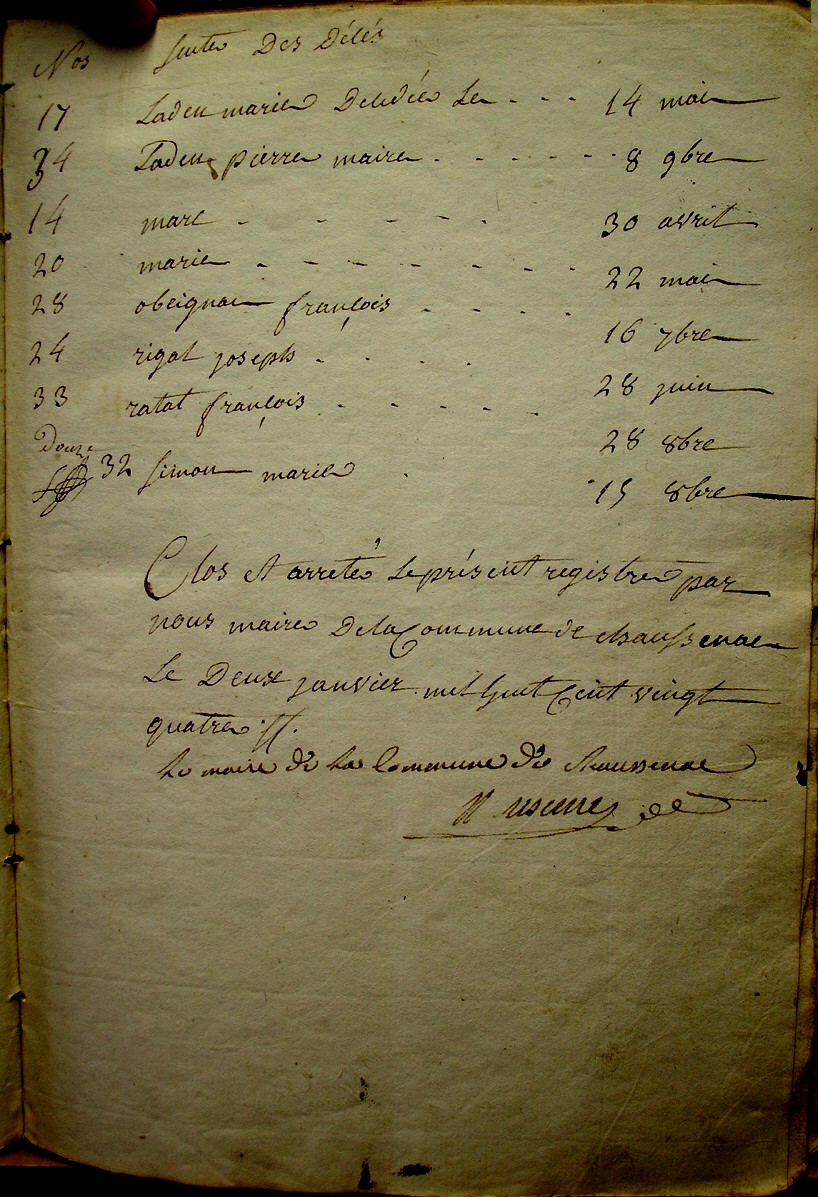 Nos suite Des Décés
17 Ladeu marie Décédée Le - - - 14 mai
34 Ladeu pierre maire - - - - - - 8 9bre
14 marc - - - - - 30 avril
20 marie - - - - - - - 22 mai
28 obeignac françois - - - - 16 7bre
24 rigal joseph - - - - 28 juin
33 ratat françois - - - - - 28 8bre
Douze
32 simon marie - 15 8bre
Clos et arreté Le présent registre par
nous maire De la Commune de chaussenac
Le Deux janvier mil huit Cent vingt
quatre //.
Le maire de la Commune de Chaussenac